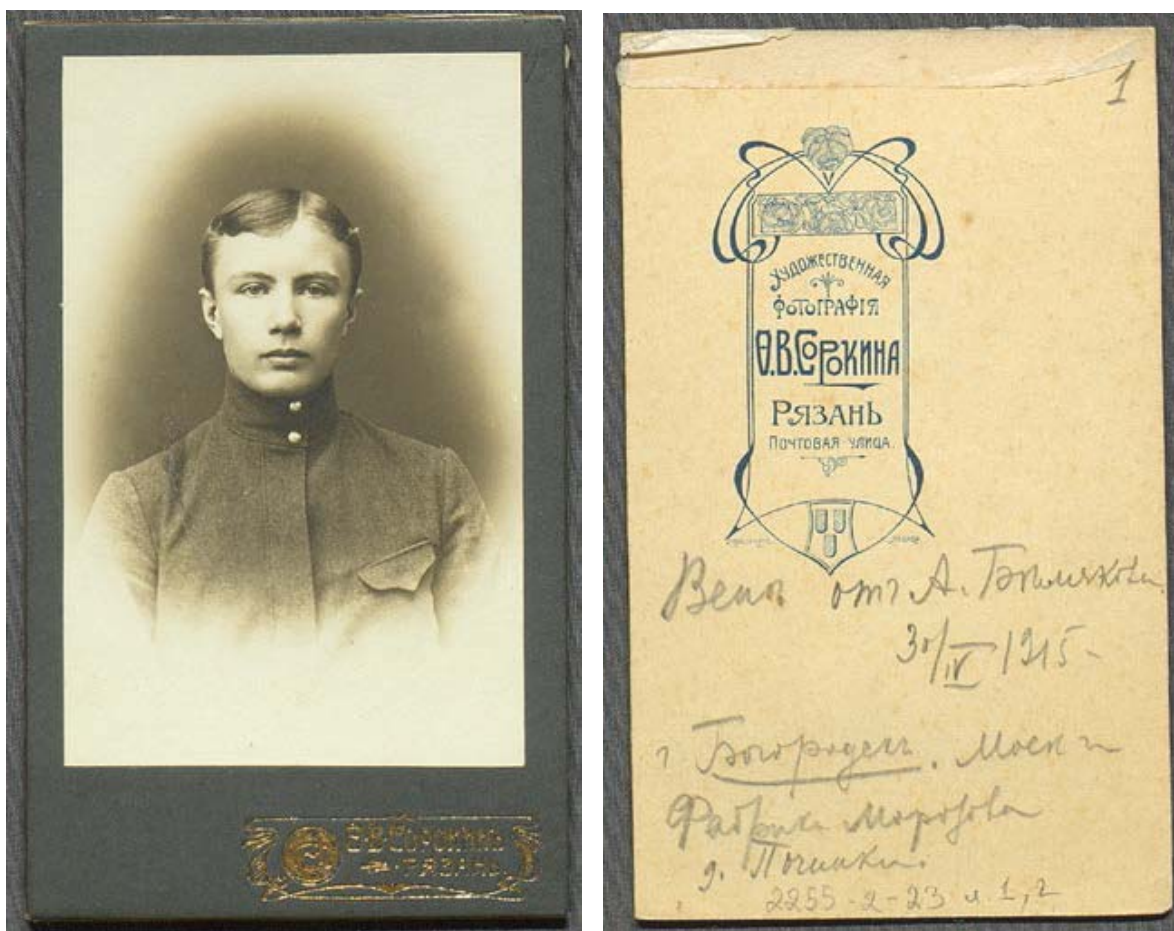 Ѳ.В.Сорокинъ
РЯЗАНЬ.
1
ХУДОЖЕСТВЕННАЯ
ФОТОГРАФІЯ
Ѳ.В.СОРОКИНА
РЯЗАНЬ
ПОЧТОВАЯ УЛИЦА.
отъ А.
30/IV 1915-
г Богородскъ. Моск г
Фабрика Морозова
д. Починки.
2255-2-23 л. 1, 2